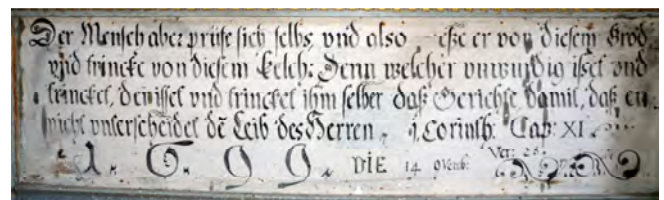 Der Mensch aber prüfe sich selbs, vnd also eße er von diesem Brod
vnd trincke von diesem Kelch: Denn welcher vnwürdig isset vnd
trincket, der isset vnd trincket ihm selber daß Gerichte, damit, daß er
nicht vnterscheidet dē Leib des Herren. 1. Corinth: Cap: XI.
DIE 14 Ver: 28.